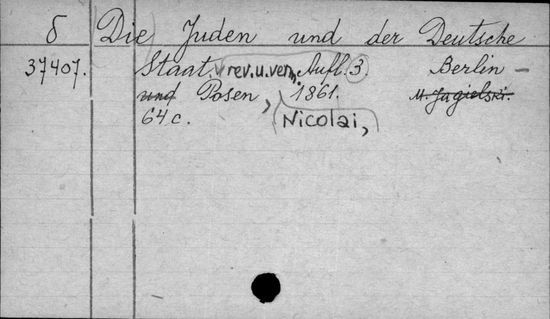 δ Die Juden und der Deutsche
37407. Staat, rev. u. verm. Aufl. 3. Berlin –
und Posen, 1861. M. Jagielski.
64 c. Nicolai,